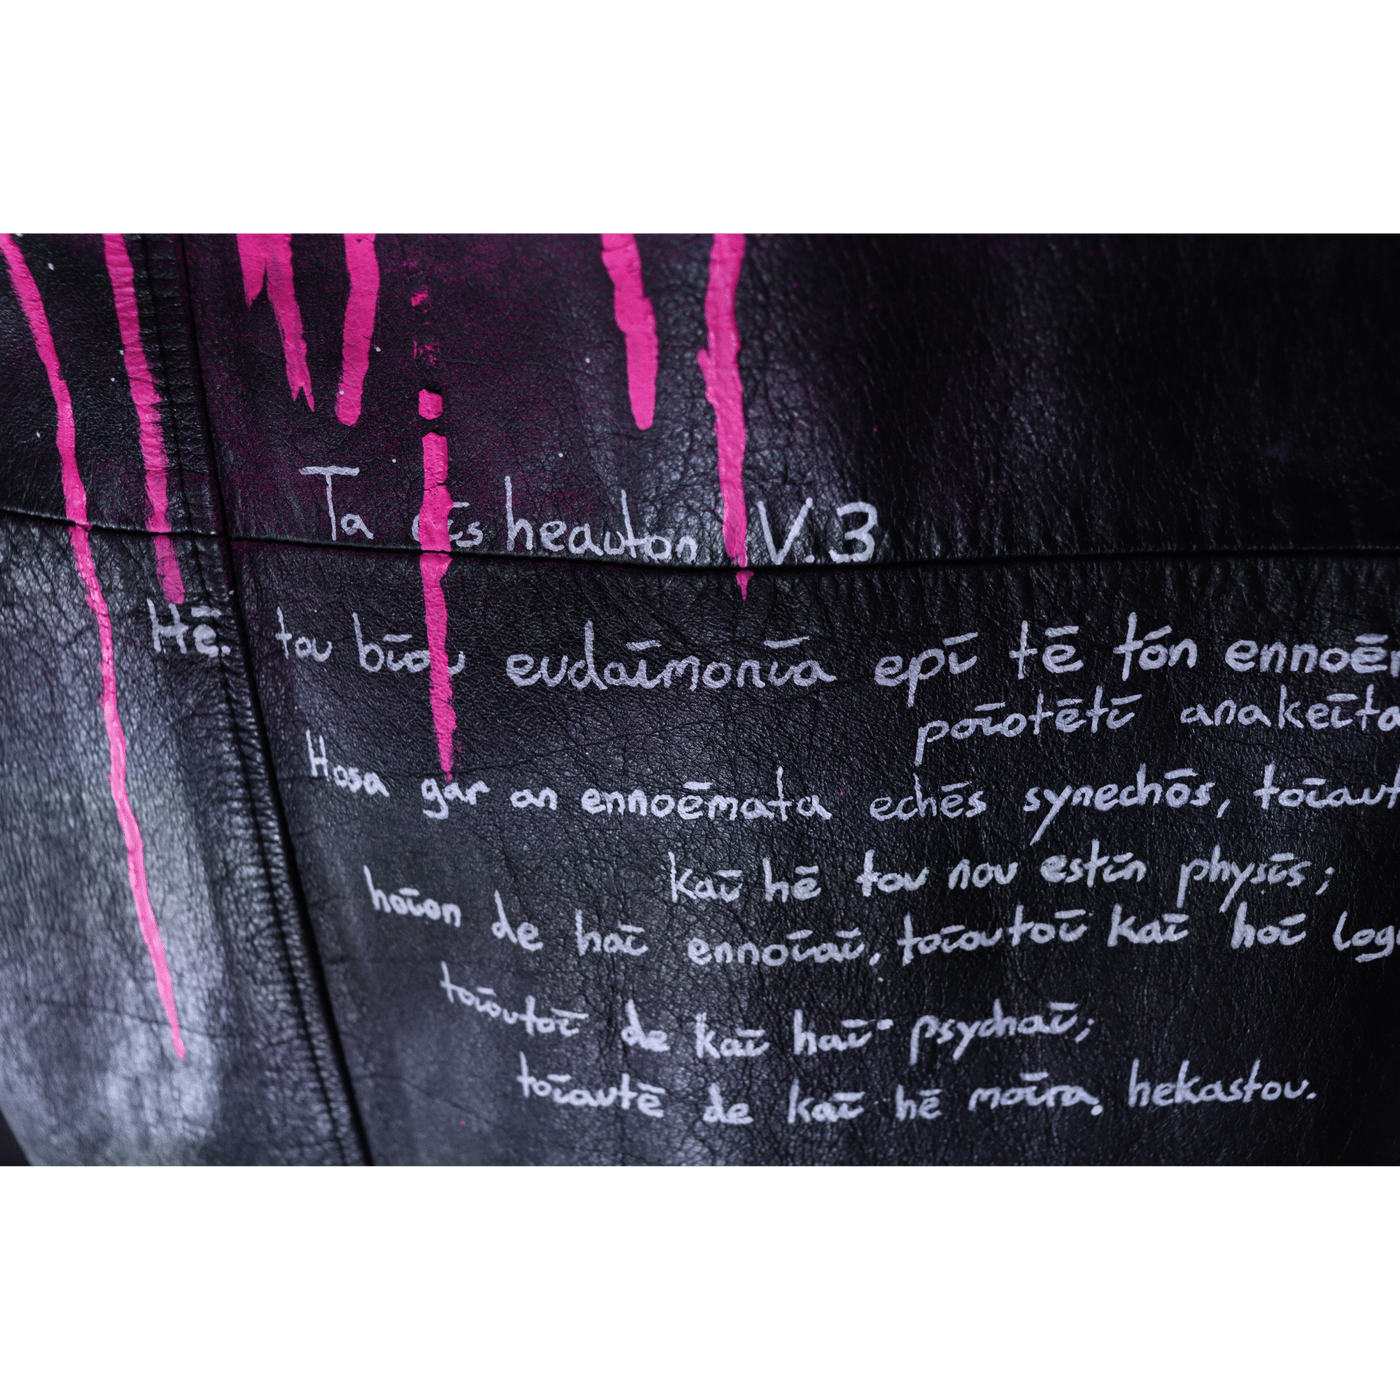 Ta eīs heauton V.3
Hē. tou bīou eudaīmonīa epī tē tón ennoēm
poīotētī anakeīta
Hosa gar an ennoēmata echēs synechōs, toīaut
kaī hē tou nou estīn physīs;
hoīon de haī ennoīaī, toīoutoī kaī hoī log
toīoutoī de kaī haī psychaī;
toīautē de kaī hē moīra hekastou.